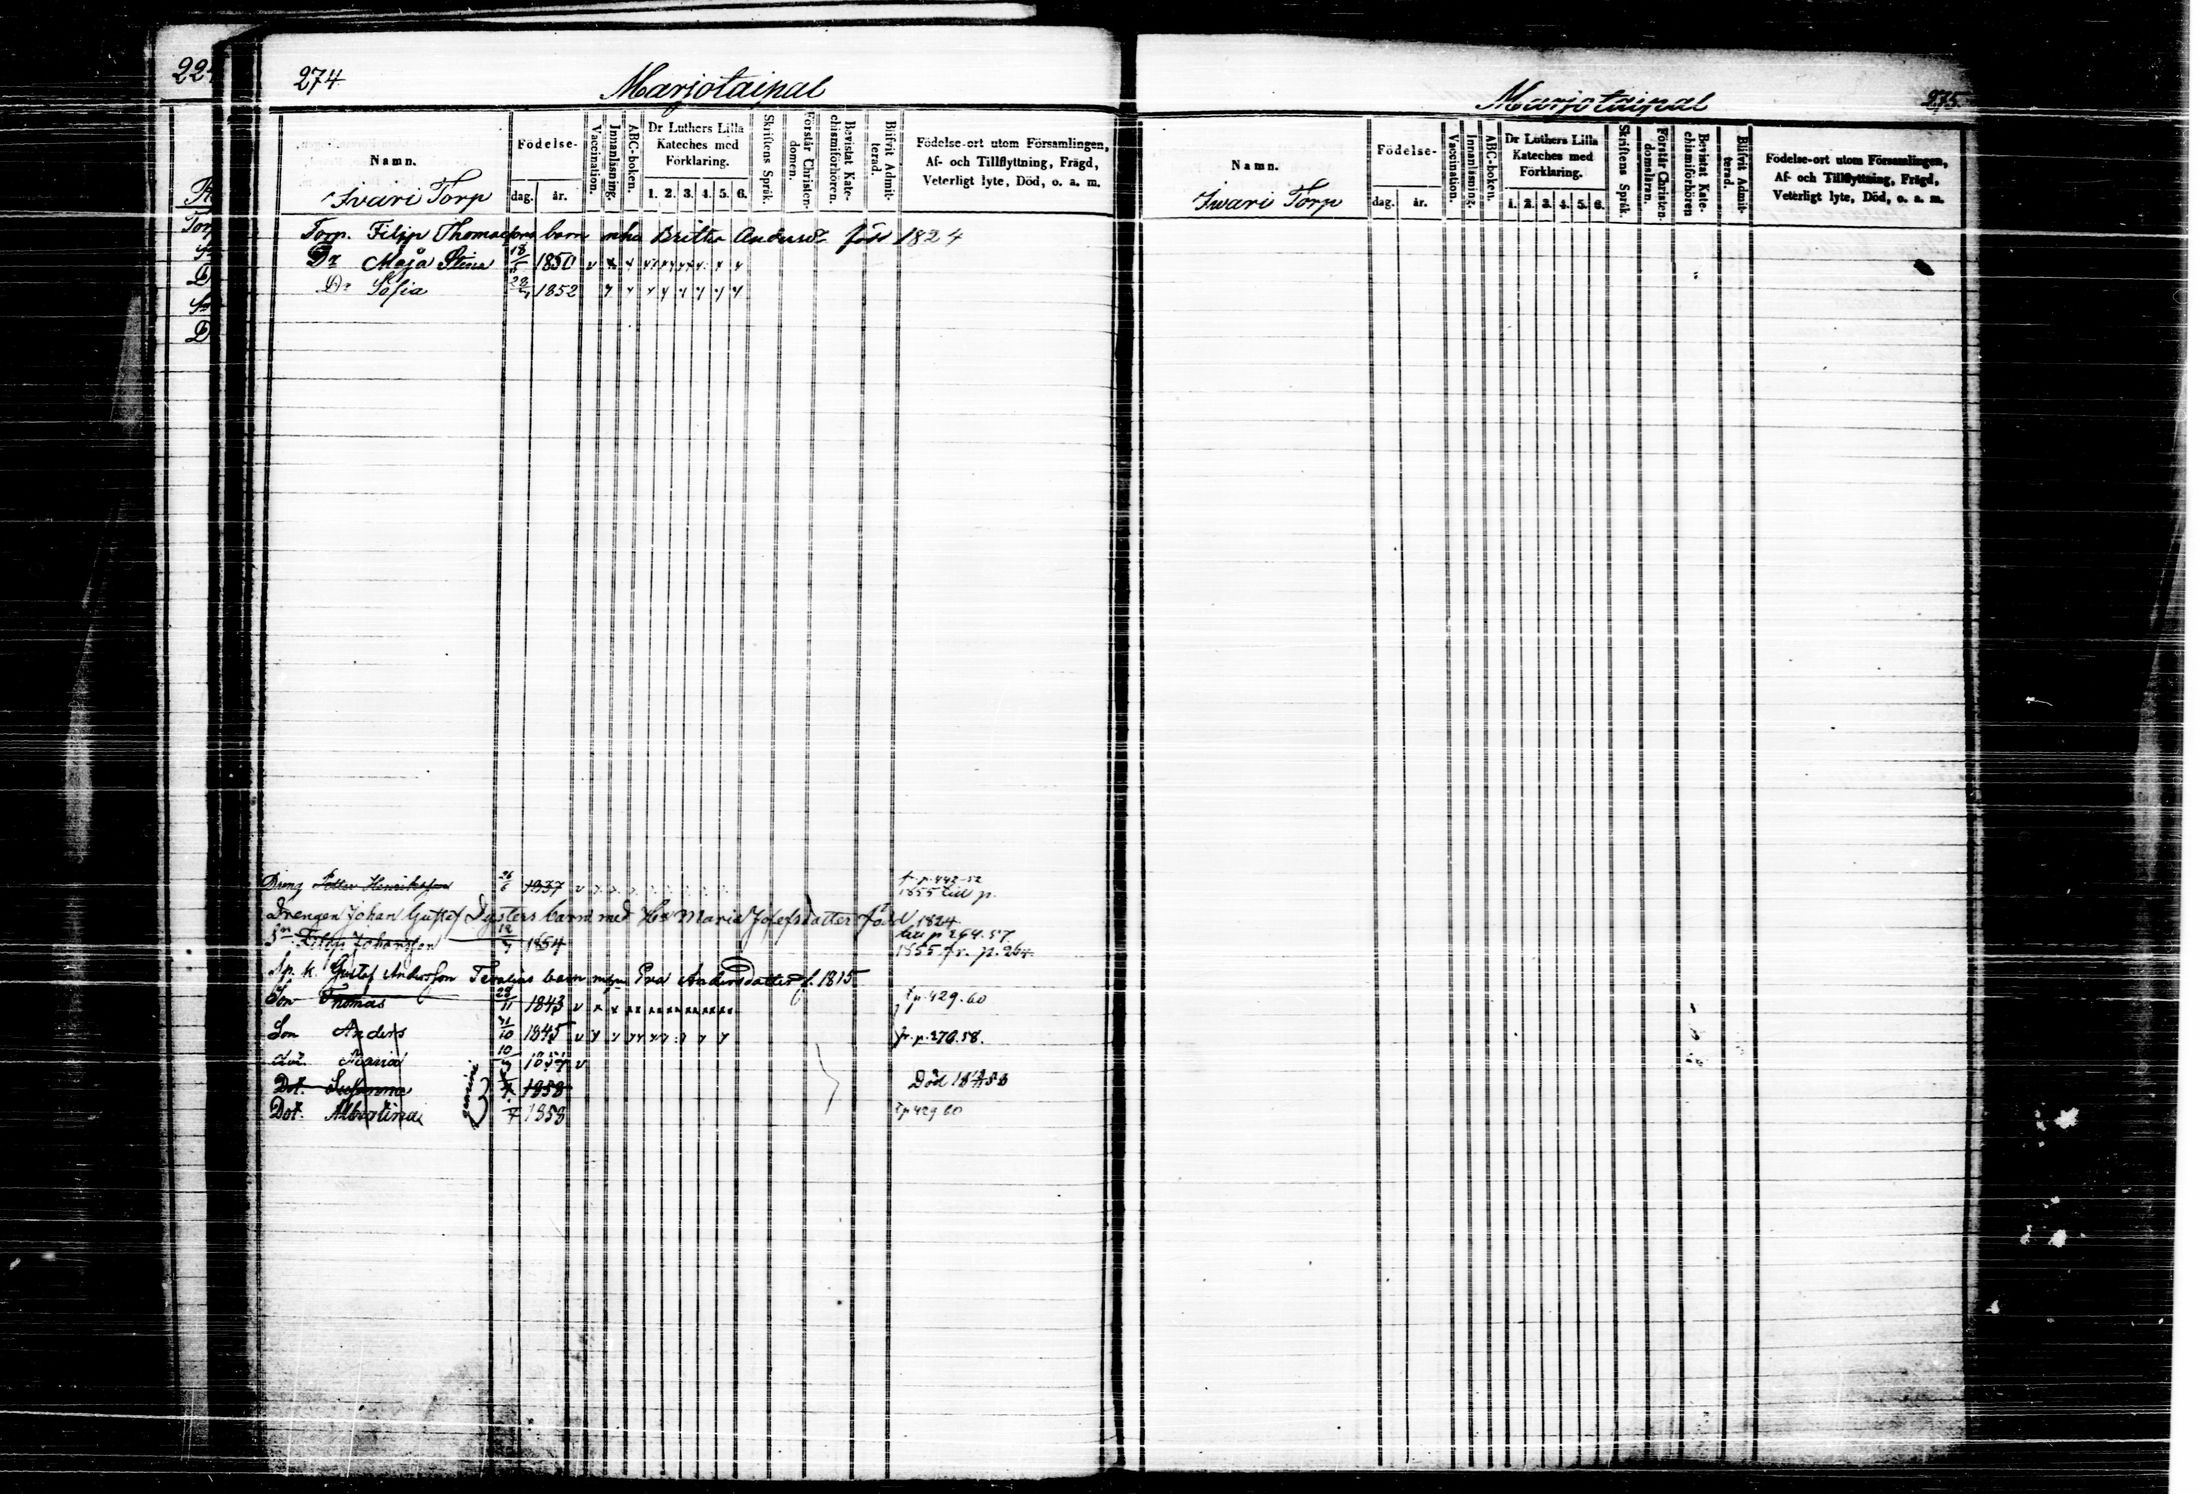 274
Marjotaipal
Namn.
Födelse-
dag. år.
Vaccination.
Innanläsning.
ABC-boken.
Dr Luthers Lilla Kateches med Förklaring.
1. 2. 3. 4. 5. 6.
Skriftens Språk.
Förstår Christen-domen.
Bevistat Kate-chismiförhören.
Blifvit Admit-terad.
Födelse-ort utom Församlingen,
Af- och Tillflyttning, Frägd,
Veterligt lyte, Död, o. a. m.
Ivari Torp
Torp. Filip Thomasons barn Britta Andersd född 1824
Dr Maja Stina 18/5 1850 v
Dr Sofia 1852
Dreng Petter Henriksson 26/6 1837 v fr. p. 442-52
1855 till p.
Drengen Johan Gustaf barn med Maria Josefsdotter född 1824
Sn Filip Johansson 12/7 1854 till p 264.57
1855 fr. p. 264
Gustaf Andersson barn Eva Andersdotter f. 1815
Son Thomas 28/11 1843 v t p. 429.60
Son Anders 31/10 1845 v fr. p. 270.58.
dot. Maria 10/9 1854 v
Dot. Susanna 1858 Död
Dot. Albertina 1858 t p 429 60
gemini
Marjotaipal
275
Namn.
Födelse-
dag. år.
Vaccination.
Innanläsning.
ABC-boken.
Dr Luthers Lilla Kateches med Förklaring.
1. 2. 3. 4. 5. 6.
Skriftens Språk.
Förstår Christen-domsläran.
Bevistat Kate-chismiförhören
Blifvit Admit-terad.
Födelse-ort utom Församlingen,
Af- och Tillflyttning, Frägd,
Veterligt lyte, Död, o. a. m.
Iwari Torp